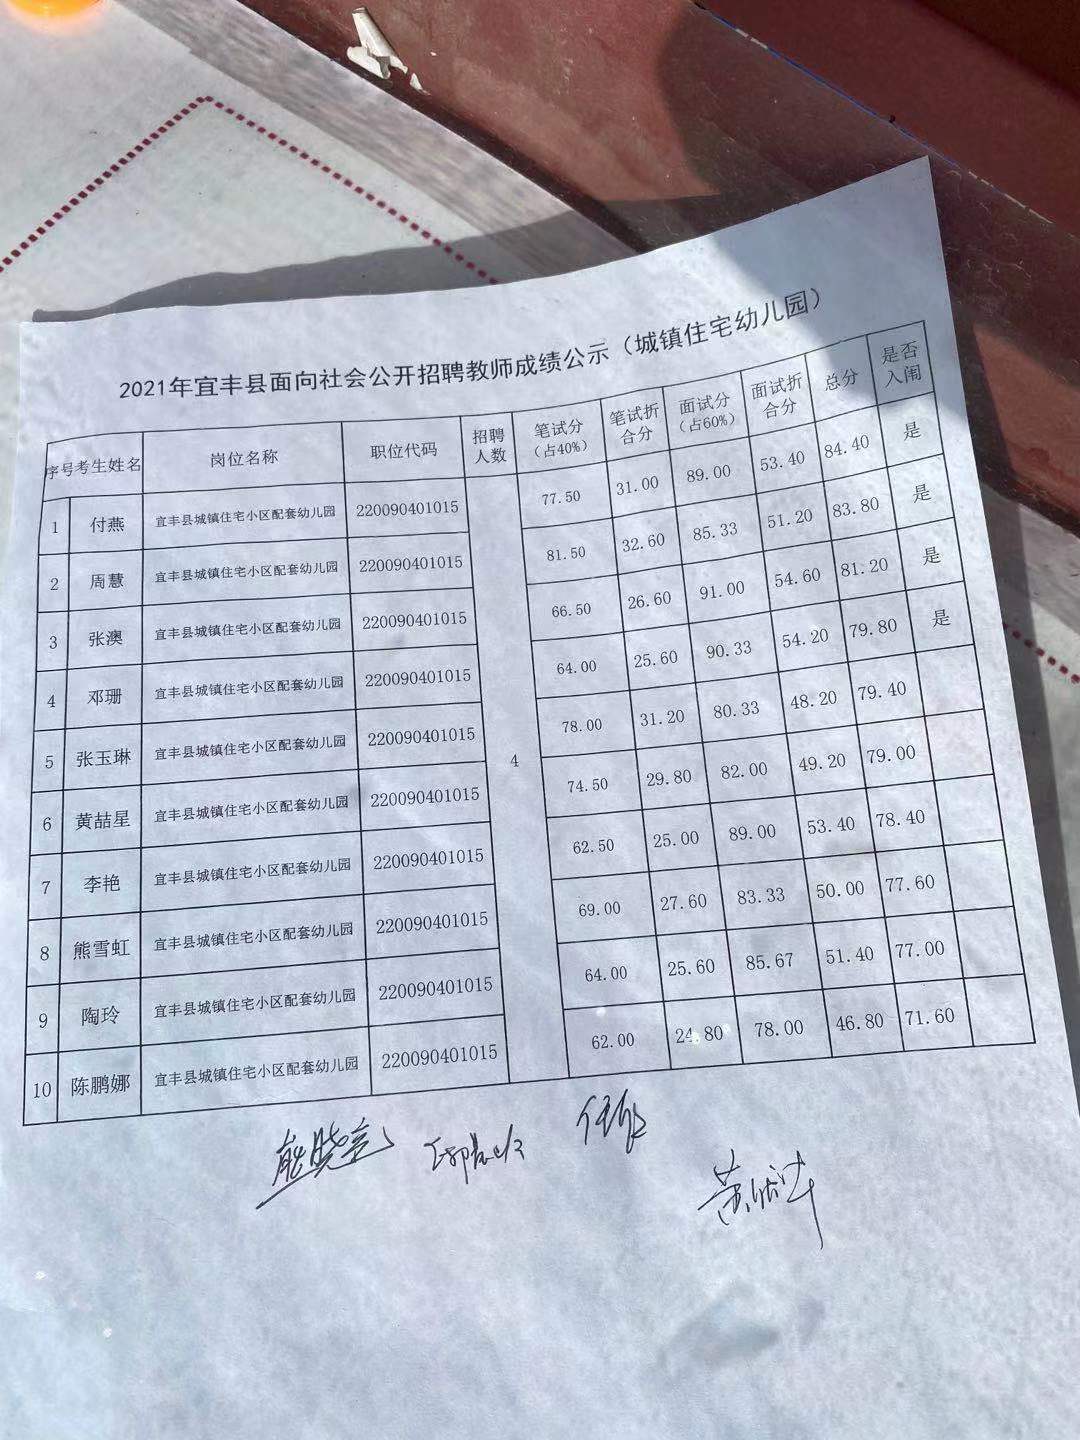 2021年宜丰县面向社会公开招聘教师成绩公示（城镇住宅幼儿园）
序号 考生姓名 岗位名称 职位代码 招聘人数 笔试分（占40%） 笔试折合分 面试分（占60%） 面试折合分 总分 是否入闱
1 付燕 宜丰县城镇住宅小区配套幼儿园 220090401015 4 77.50 31.00 89.00 53.40 84.40 是
2 周慧 宜丰县城镇住宅小区配套幼儿园 220090401015 81.50 32.60 85.33 51.20 83.80 是
3 张澳 宜丰县城镇住宅小区配套幼儿园 220090401015 66.50 26.60 91.00 54.60 81.20 是
4 邓珊 宜丰县城镇住宅小区配套幼儿园 220090401015 64.00 25.60 90.33 54.20 79.80 是
5 张玉琳 宜丰县城镇住宅小区配套幼儿园 220090401015 78.00 31.20 80.33 48.20 79.40
6 黄喆星 宜丰县城镇住宅小区配套幼儿园 220090401015 74.50 29.80 82.00 49.20 79.00
7 李艳 宜丰县城镇住宅小区配套幼儿园 220090401015 62.50 25.00 89.00 53.40 78.40
8 熊雪虹 宜丰县城镇住宅小区配套幼儿园 220090401015 69.00 27.60 83.33 50.00 77.60
9 陶玲 宜丰县城镇住宅小区配套幼儿园 220090401015 64.00 25.60 85.67 51.40 77.00
10 陈鹏娜 宜丰县城镇住宅小区配套幼儿园 220090401015 62.00 24.80 78.00 46.80 71.60